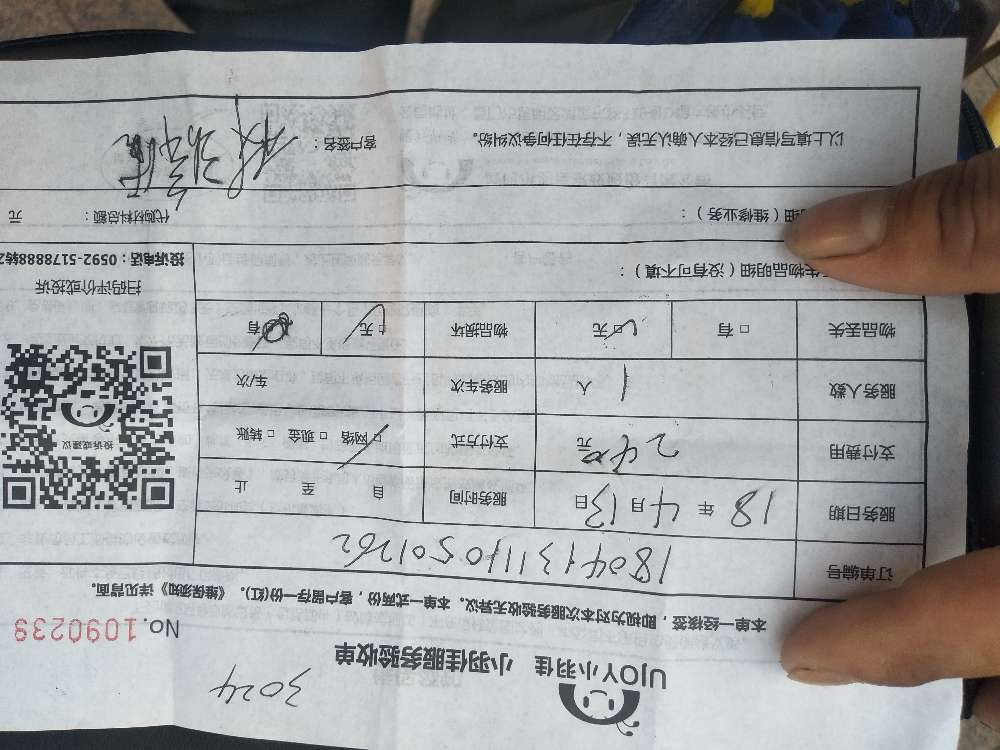 3024
UJOY小羽佳 小羽佳服务验收单
No.1090239
本单一经核签，即视为对本次服务验收无异议。本单一式两份，客户留存一份(红)。《维保须知》详见背面。
订单编号 1804131110501262
服务日期 18 年 4 月 13 日 服务时间 自 至 止
支付费用 元 支付方式 □ 网络 □ 现金 □ 转账
服务人数 1 人 服务车次 车/次
物品丢失 □ 有 □ 无 物品损坏 □ 无 □ 有
投诉或建议
扫码评价或投诉
投诉电话：0592-5178888转2
生物品明细（没有可不填）：
细（维修业务）： 代购材料总额： 元
以上填写信息已经本人确认无误，不存在任何争议纠纷。 客户签名：